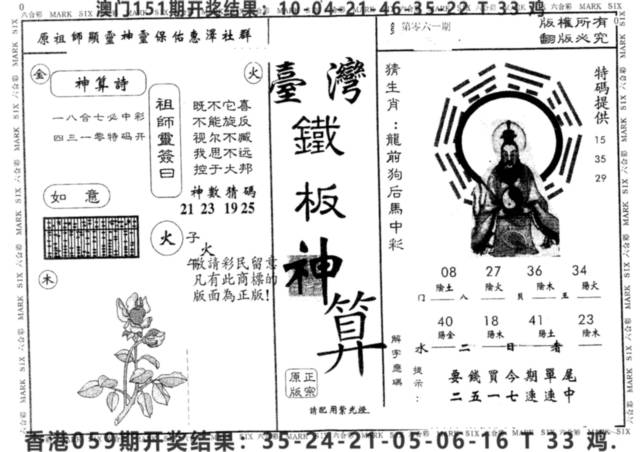 澳门151期开奖结果：10-04-21-46-35-22 T 33 鸡
原祖師顯靈神靈保佑惠澤社群
§ 第零六一期
版權所有
翻版必究
金
神算詩
火
一八合七必中彩
四三一零特码开
祖師靈簽曰
既不它喜
不能旋反
视尔不臧
我思不远
控于大邦
神數猜碼
21 23 19 25
如意
火
子
火
午
敬請彩民留意
凡有此商標的
版面為正版!
木
臺灣
鐵板神算
正宗
原版
請配用紫光燈
猜生肖：龍前狗后馬中彩
特碼提供
15
35
29
08 27 36 34
陰土 陰火 陰木 陽火
门 八 贝 五
40 18 41 23
陽金 陽木 陽土 陰木
水 二 日 看
解字應碼
提示：
要錢買今期單尾
二五一七連連中
香港059期开奖结果：35-24-21-05-06-16 T 33 鸡.
六合彩 MARK SIX 六合彩 MARK SIX